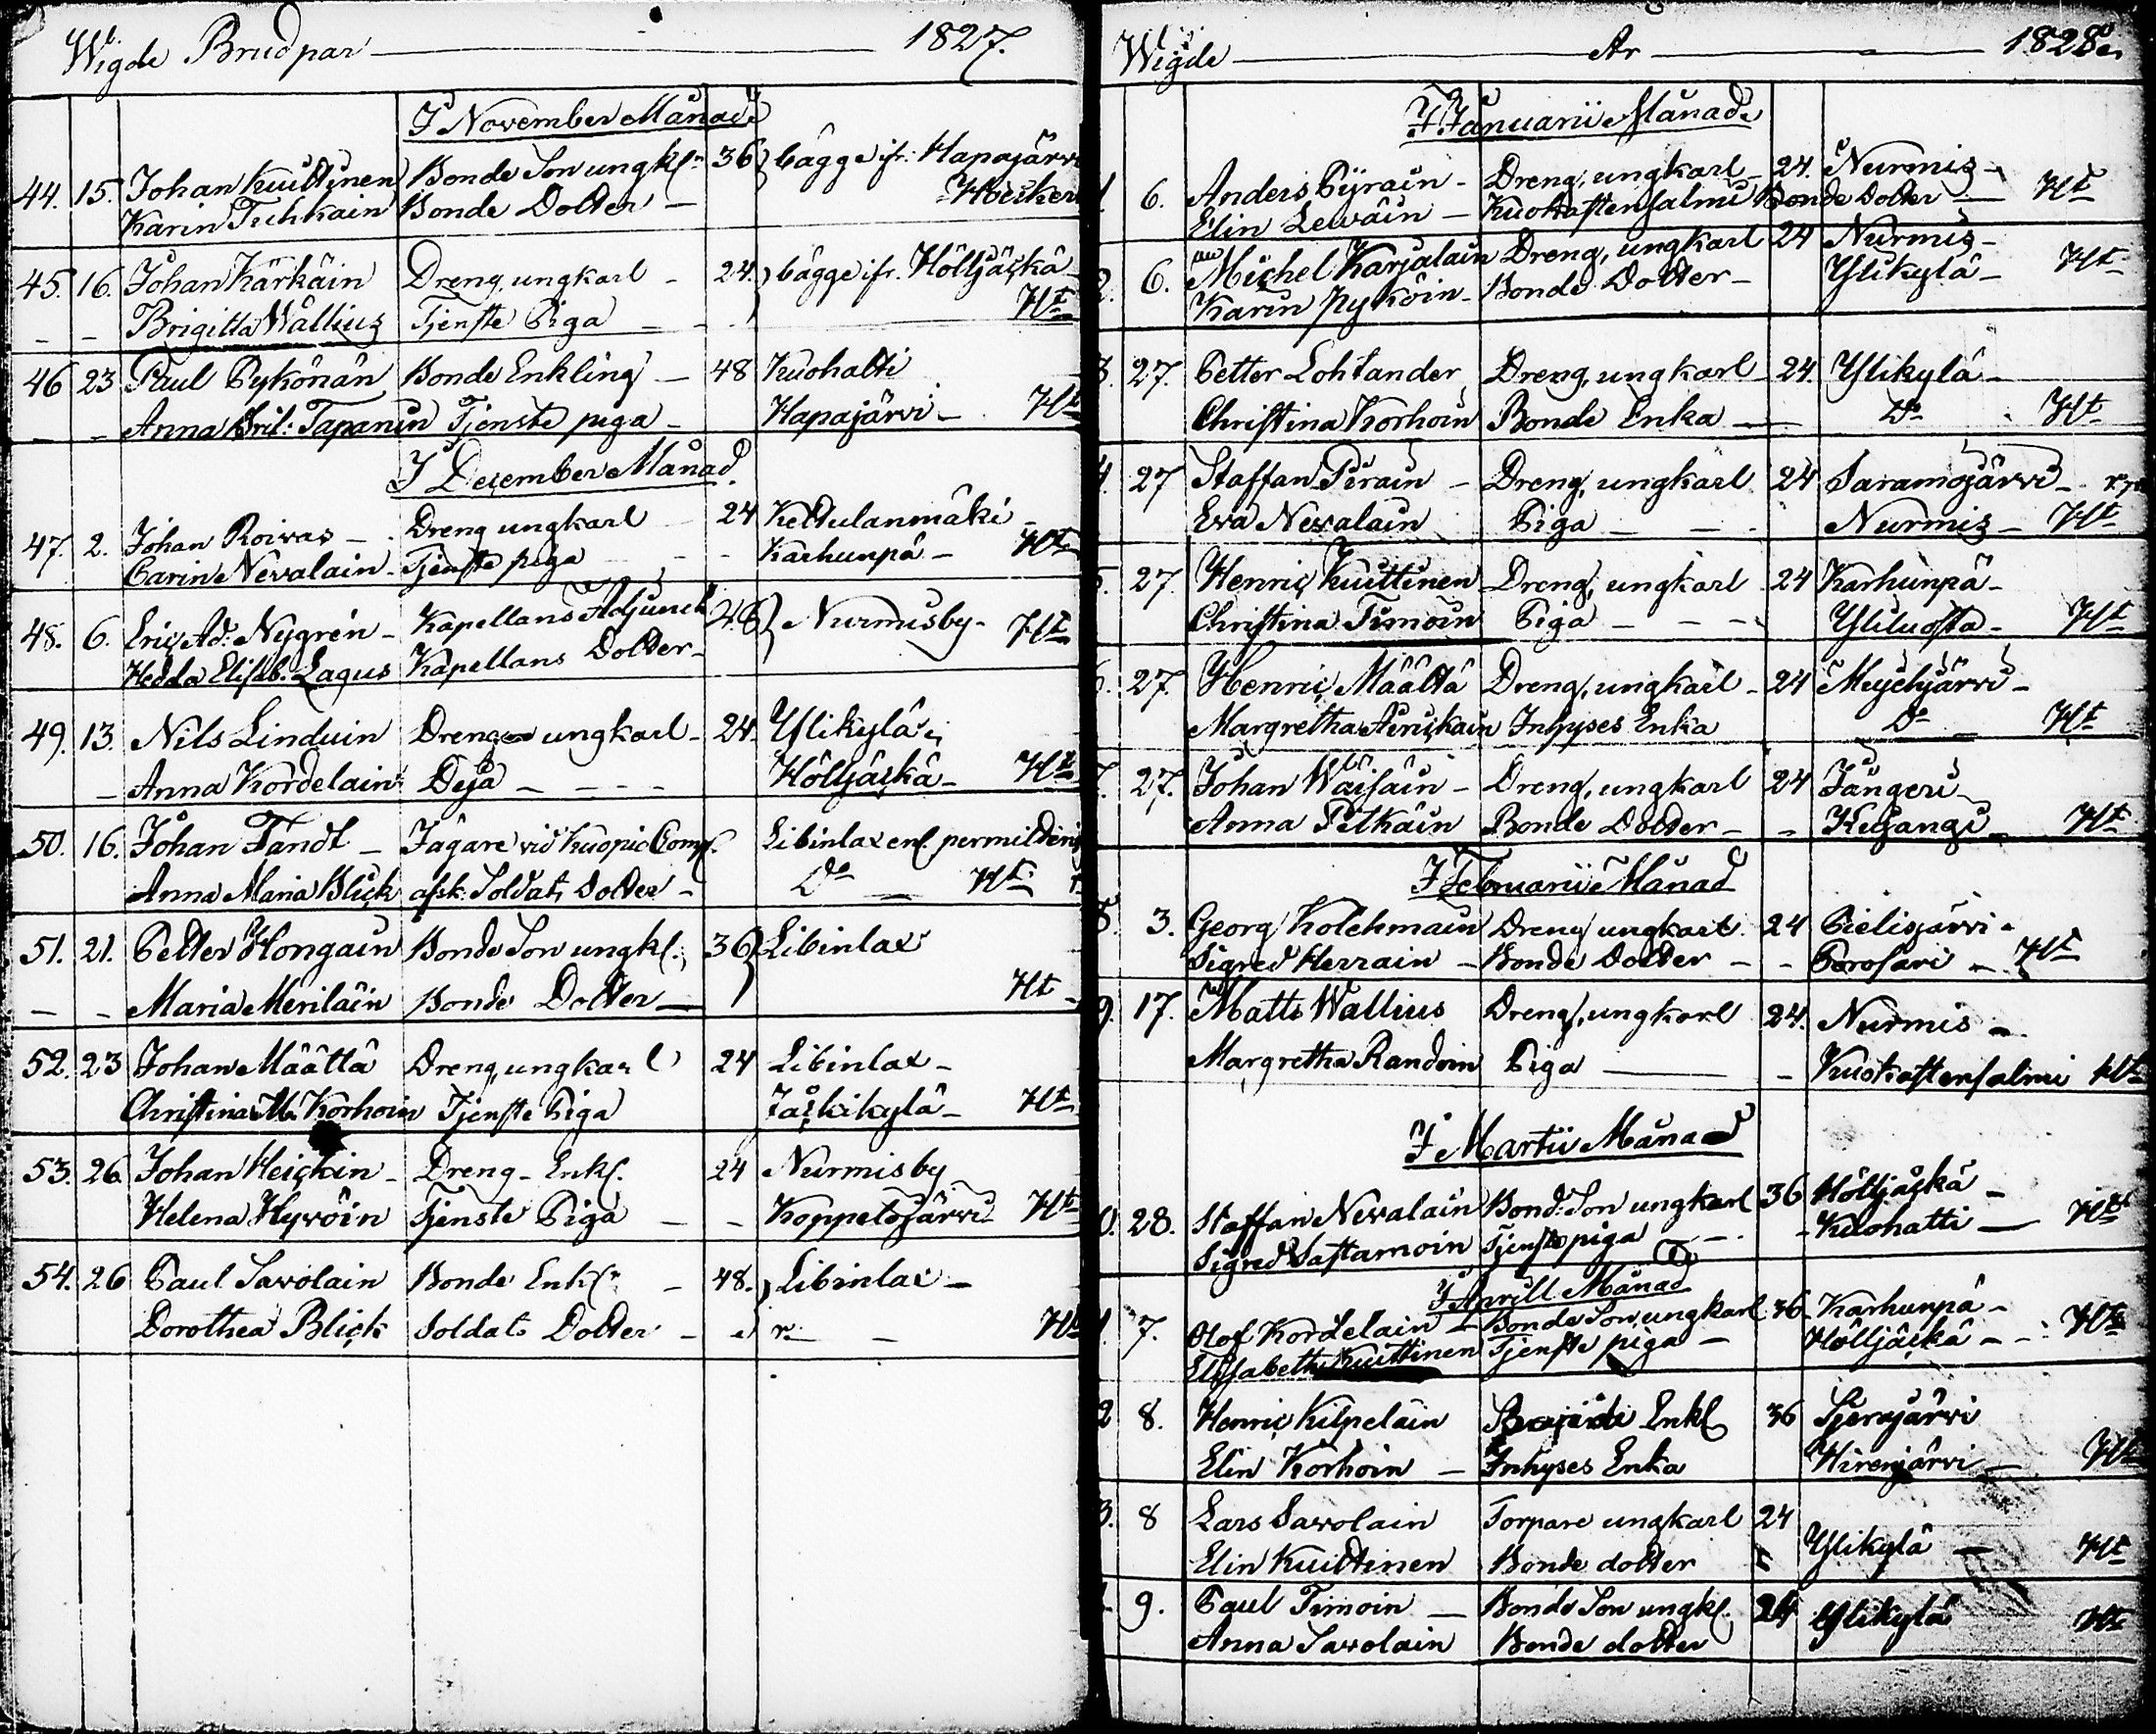 Wigde Brudpar 1827.
I November Månad
44. 15. Johan Kuittinen Bonde Son ungkl. 36 bägge ifr. Hapajärvi
Karin Tuhkain Bonde Dotter
45. 16. Johan Kärkäin Dreng, ungkarl 24. bägge ifr. Höltjäskä
Brigitta Wallius Tjenste Piga Ht
46 23 Paul Pykönän Bonde Enkling 48 Kuohatti
Anna Tapanin Tjenste piga Hapajärvi Ht
I December Månad
47. 2. Johan Roivas Dreng ungkarl 24 Keldulanmäki
Carin Nevalain Tjenste piga Karhunpä Ht
48. 6. Eric Ad: Nygrén Kapellans Adjunct Nurmisby Ht
Hedda Elisab. Lagus Kapellans Dotter
49. 13. Nils Linduin Dreng ungkarl 24. Ylikylä
Anna Kordelain Deja Höltjäskä Ht
50. 16. Johan Tandt Jägare vid Kuopio Comp. Libinlax enl. permildning
Anna Maria Blick afsk: Soldats Dotter Do Ht
51. 21. Petter Hongain Bonde Son ungkl. 36 Libinlax
Maria Meriläin Bonde Dotter Ht
52. 23 Johan Määttä Dreng, ungkarl 24 Libinlax
Christina M: Korhoin Tjenste Piga Ht
53. 26. Johan Heickin Dreng Enkl. 24 Nurmisby
Helena Hyvöin Tjenste Piga Koppelojärvi Ht
54. 26 Paul Savolain Bonde Enkl. 48. Libinlax
Dorothea Blick Soldats Dotter Ht
Wigde År 1828
I Januarii Månad
6. Anders Pyräin Dreng, ungkarl 24. Nurmis
Elin Leväin Kuokastensalmi Bonde Dotter Ht
6. Michel Karjalain Dreng, ungkarl 24 Nurmis
Karin Pyköin Bonde Dotter Ylikylä Ht
27. Petter Lohtander Dreng, ungkarl 24. Ylikylä
Christina Korhoin Bonde Enka Do Ht
27 Staffan Pirain Dreng, ungkarl 24 Saramojärvi
Eva Nevalain Piga Nurmis Ht
27. Henric Kuittinen Dreng, ungkarl 24 Karhunpä
Christina Timoin Piga Yliluosta Ht
27. Henric Määttä Dreng, ungkarl 24 Mujejärvi
Margretha Inhyses Enka Do Ht
27. Johan Wäisäin Dreng, ungkarl 24 Jängeri
Anna Pitkäin Bonde Dotter Ht
I Februarii Månad
3. Georg Kolehmain Dreng ungkarl 24 Pielisjärvi
Sigred Herrain Bonde Dotter Porosari Ht
17. Matts Wallius Dreng, ungkarl 24. Nurmis
Margretha Randoin Piga Kuokastensalmi Ht
I Martii Månad
28. Staffan Nevalain Bond: Son ungkarl 36 Höltjäskä
Sigred Sastamoin Tjenste piga Kuohatti Ht
I Aprill Månad
7. Olof Kordelain Bonde Son, ungkarl 36 Karhunpä
Elisabeth Kuittinen Tjenste piga Höltjäskä Ht
8. Henric Kilpeläin Enkl 36
Elin Korhoin Inhyses Enka Hirenjärvi Ht
8 Lars Savolain Torpare ungkarl 24
Elin Kuittinen Bonde dotter Ylikylä Ht
9. Paul Timoin Bonde Son ungkl. 24 Ylikylä Ht
Anna Savolain Bonde dotter